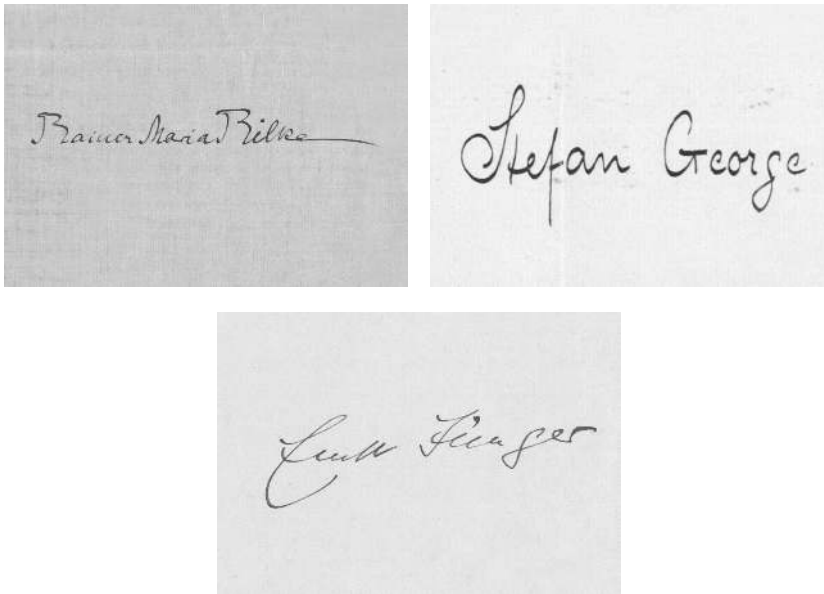 Rainer Maria Rilke
Stefan George
Ernst Jünger